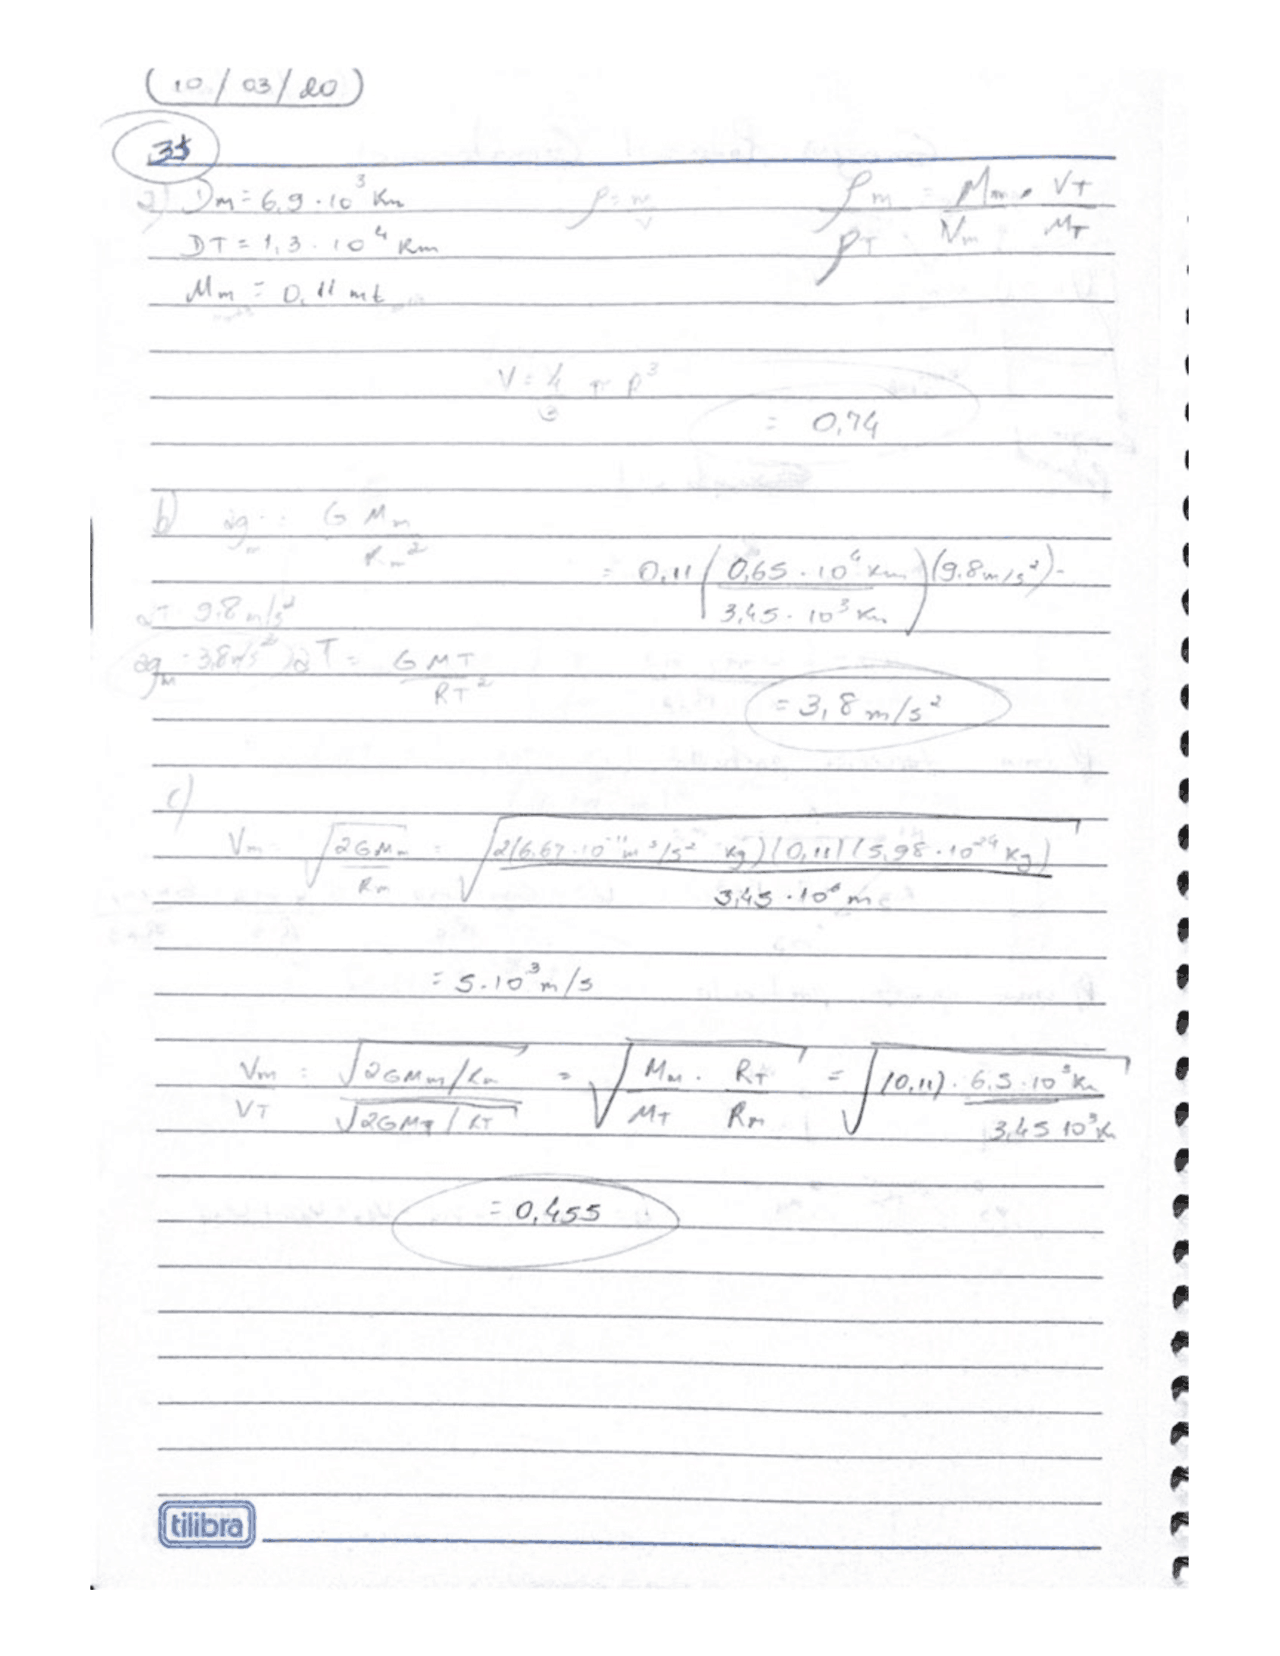 (10/03/20)
35
a) Dm = 6,9 · 10³ Km
ρ = m/v
ρm/ρT = Mm/Vm · VT/MT
DT = 1,3 · 10⁴ Km
Mm = 0,11 mt
V = 4/3 π R³
= 0,74
b) agm = G Mm/Rm²
= 0,11 (0,65 · 10⁴ Km / 3,45 · 10³ Km) (9.8 m/s²) =
aT = 9,8 m/s²
agm = 3,8 m/s²
aT = G MT/RT²
= 3,8 m/s²
c)
Vm = √(2GMm/Rm) = √(2(6,67 · 10⁻¹¹ m³/s² kg)(0,11)(5,98 · 10²⁴ kg) / 3,45 · 10⁶ m)
= 5 · 10³ m/s
Vm/VT = √(2GMm/Rm) / √(2GMT/RT) = √(Mm/MT · RT/Rm) = √((0,11) · 6,5 · 10³ Km / 3,45 10³ Km)
= 0,455
tilibra